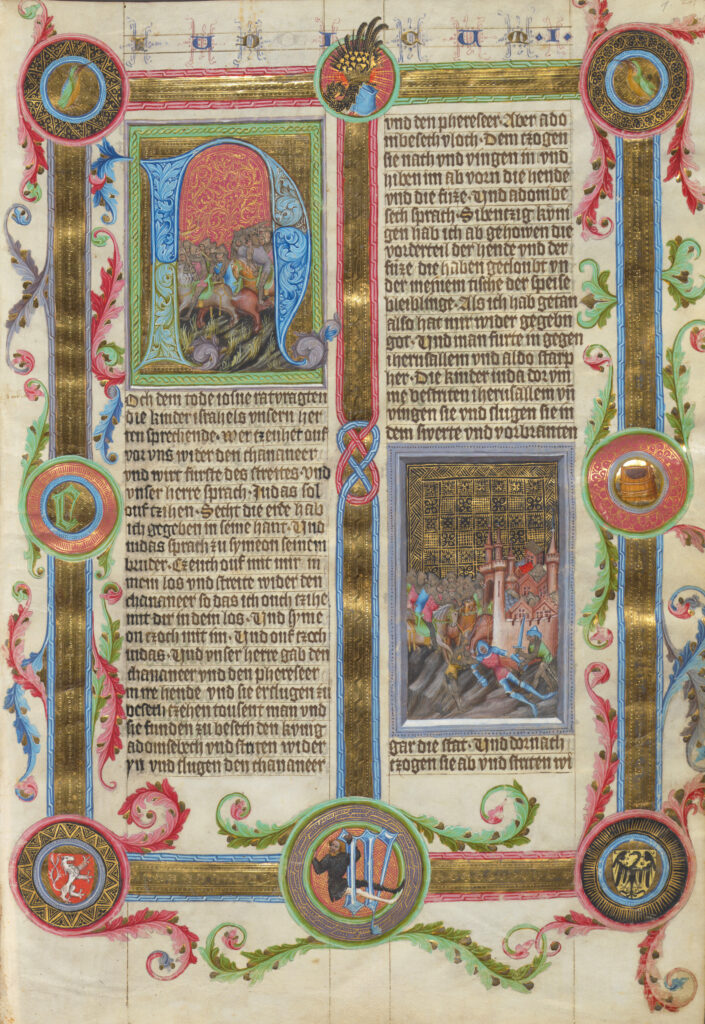 IUDICUM·I·
N
Och dem tode iosue ratvragten
die kinder israhels vnsern her
ren sprechende· wer czeuhet ouf
vor vns wider den chananeer
vnd wirt furste des streites· vnd
vnser herre sprach· Iudas sol
ouf czihen· Secht die erde hab
ich gegeben in seine hant· Vnd
iudas sprach zu symeon seinem
bruder· Czeuch ouf mit mir in
mein los vnd streite wider den
chananeer so das ich ouch czihe
mit dir in dem los· Vnd Syme
on czoch mit im· Vnd ouf czoch
iudas· Vnd vnser herre gab den
chananeer vnd den phereseer
in ire hende vnd sie erslugen zu
besech czehen tousent man vnd
sie funden zu besech den kunig
adonibesech vnd striten wider
yn vnd slugen den chananeer
vnd den phereseer· Aber ado
nibesech vloch· Dem czogen
sie nach vnd vingen in vnd
hiben im ab vorn die hende
vnd die fuze· Vnd adonibe
sech sprach· Sibenczig kuni
gen hab ich ab gehowen die
vorderteil der hende vnd der
fuze die haben gecloubt vn
der meinem tische der speise
bleiblinge· Als ich hab getan
also hat mir wider gegebn
got· Vnd man furte in gegen
iherusallem vnd aldo starp
her· Die kinder iuda dor vm
me bestriten iherusallem vn
vingen sie vnd slugen sie in
dem swerte vnd vorbranten
gar die stat· Vnd dornach
czogen sie ab vnd striten wi
E
W